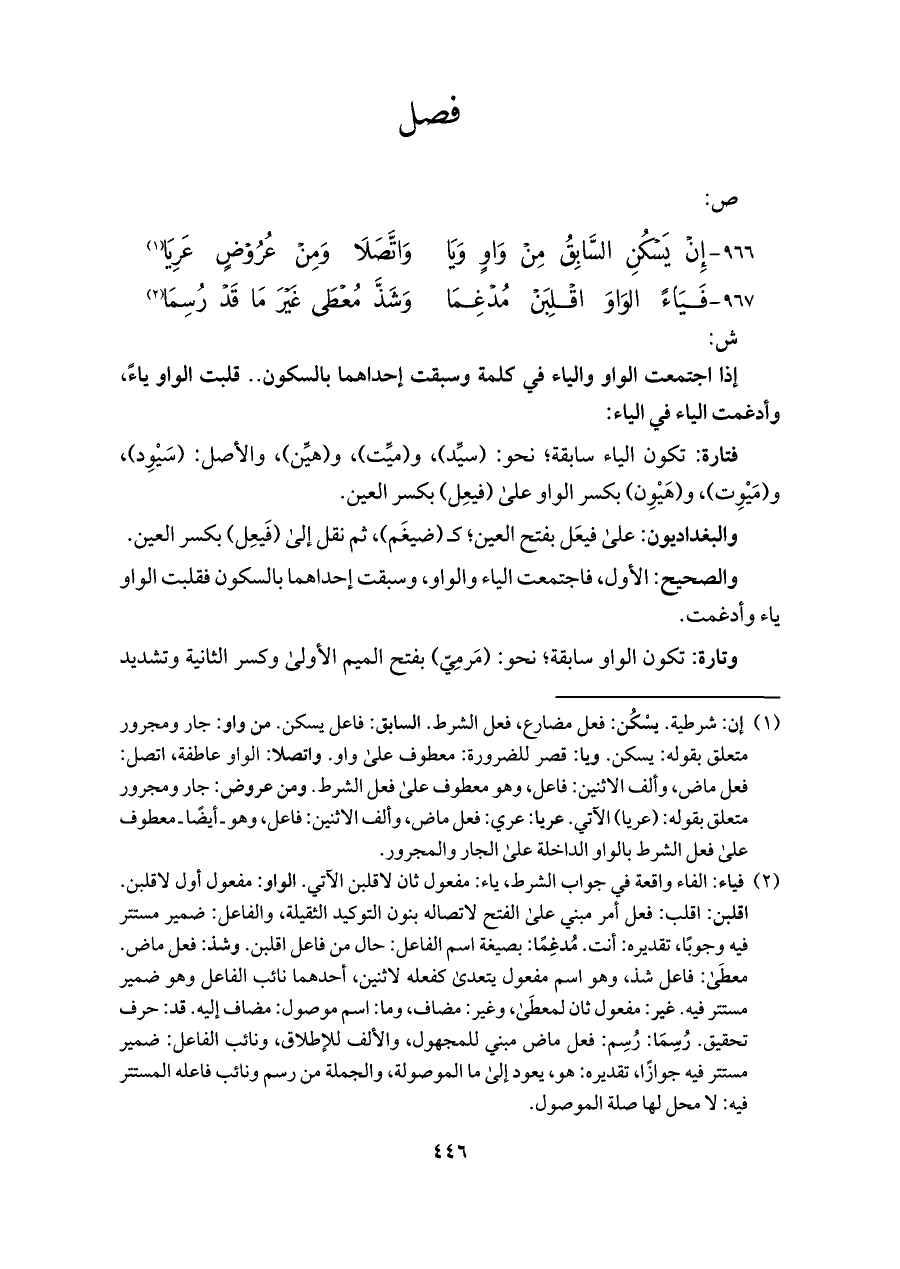 فصل
ص:
٩٦٦- إِنْ يَسْكُنِ السَّابِقُ مِنْ وَاوٍ وَيَا وَاتَّصَلَا وَمِنْ عُرُوْضٍ عَرِيَا(١)
٩٦٧- فَـيَاءً الوَاوَ اقْـلِبَنْ مُدْغِـمَا وَشَذَّ مُعْطَى غَيْرَ مَا قَدْ رُسِمَا(٢)
ش:
إذا اجتمعت الواو والياء في كلمة وسبقت إحداهما بالسكون.. قلبت الواو ياءً،
وأدغمت الياء في الياء:
فتارة: تكون الياء سابقة؛ نحو: (سيِّد)، و(ميِّت)، و(هيِّن)، والأصل: (سَيْوِد)،
و(مَيْوِت)، و(هَيْوِن) بكسر الواو علىٰ (فيعِل) بكسر العين.
والبغداديون: علىٰ فيعَل بفتح العين؛ كـ (ضيغَم)، ثم نقل إلىٰ (فَيعِل) بكسر العين.
والصحيح: الأول، فاجتمعت الياء والواو، وسبقت إحداهما بالسكون فقلبت الواو
ياء وأدغمت.
وتارة: تكون الواو سابقة؛ نحو: (مَرمِيّ) بفتح الميم الأولىٰ وكسر الثانية وتشديد
(١) إن: شرطية. يسْكُن: فعل مضارع، فعل الشرط. السابق: فاعل يسكن. من واو: جار ومجرور
متعلق بقوله: يسكن. ويا: قصر للضرورة: معطوف علىٰ واو. واتصلا: الواو عاطفة، اتصل:
فعل ماض، وألف الاثنين: فاعل، وهو معطوف علىٰ فعل الشرط. ومن عروض: جار ومجرور
متعلق بقوله: (عريا) الآتي. عريا: عري: فعل ماض، وألف الاثنين: فاعل، وهو ـ أيضًا ـ معطوف
علىٰ فعل الشرط بالواو الداخلة علىٰ الجار والمجرور.
(٢) فياء: الفاء واقعة في جواب الشرط، ياء: مفعول ثان لاقلبن الآتي. الواو: مفعول أول لاقلبن.
اقلبن: اقلب: فعل أمر مبني علىٰ الفتح لاتصاله بنون التوكيد الثقيلة، والفاعل: ضمير مستتر
فيه وجوبًا، تقديره: أنت. مُدغِمًا: بصيغة اسم الفاعل: حال من فاعل اقلبن. وشذ: فعل ماض.
معطىٰ: فاعل شذ، وهو اسم مفعول يتعدىٰ كفعله لاثنين، أحدهما نائب الفاعل وهو ضمير
مستتر فيه. غير: مفعول ثان لمعطَىٰ، وغير: مضاف، وما: اسم موصول: مضاف إليه. قد: حرف
تحقيق. رُسِمَا: رُسِم: فعل ماض مبني للمجهول، والألف للإطلاق، ونائب الفاعل: ضمير
مستتر فيه جوازًا، تقديره: هو، يعود إلىٰ ما الموصولة، والجملة من رسم ونائب فاعله المستتر
فيه: لا محل لها صلة الموصول.
٤٤٦